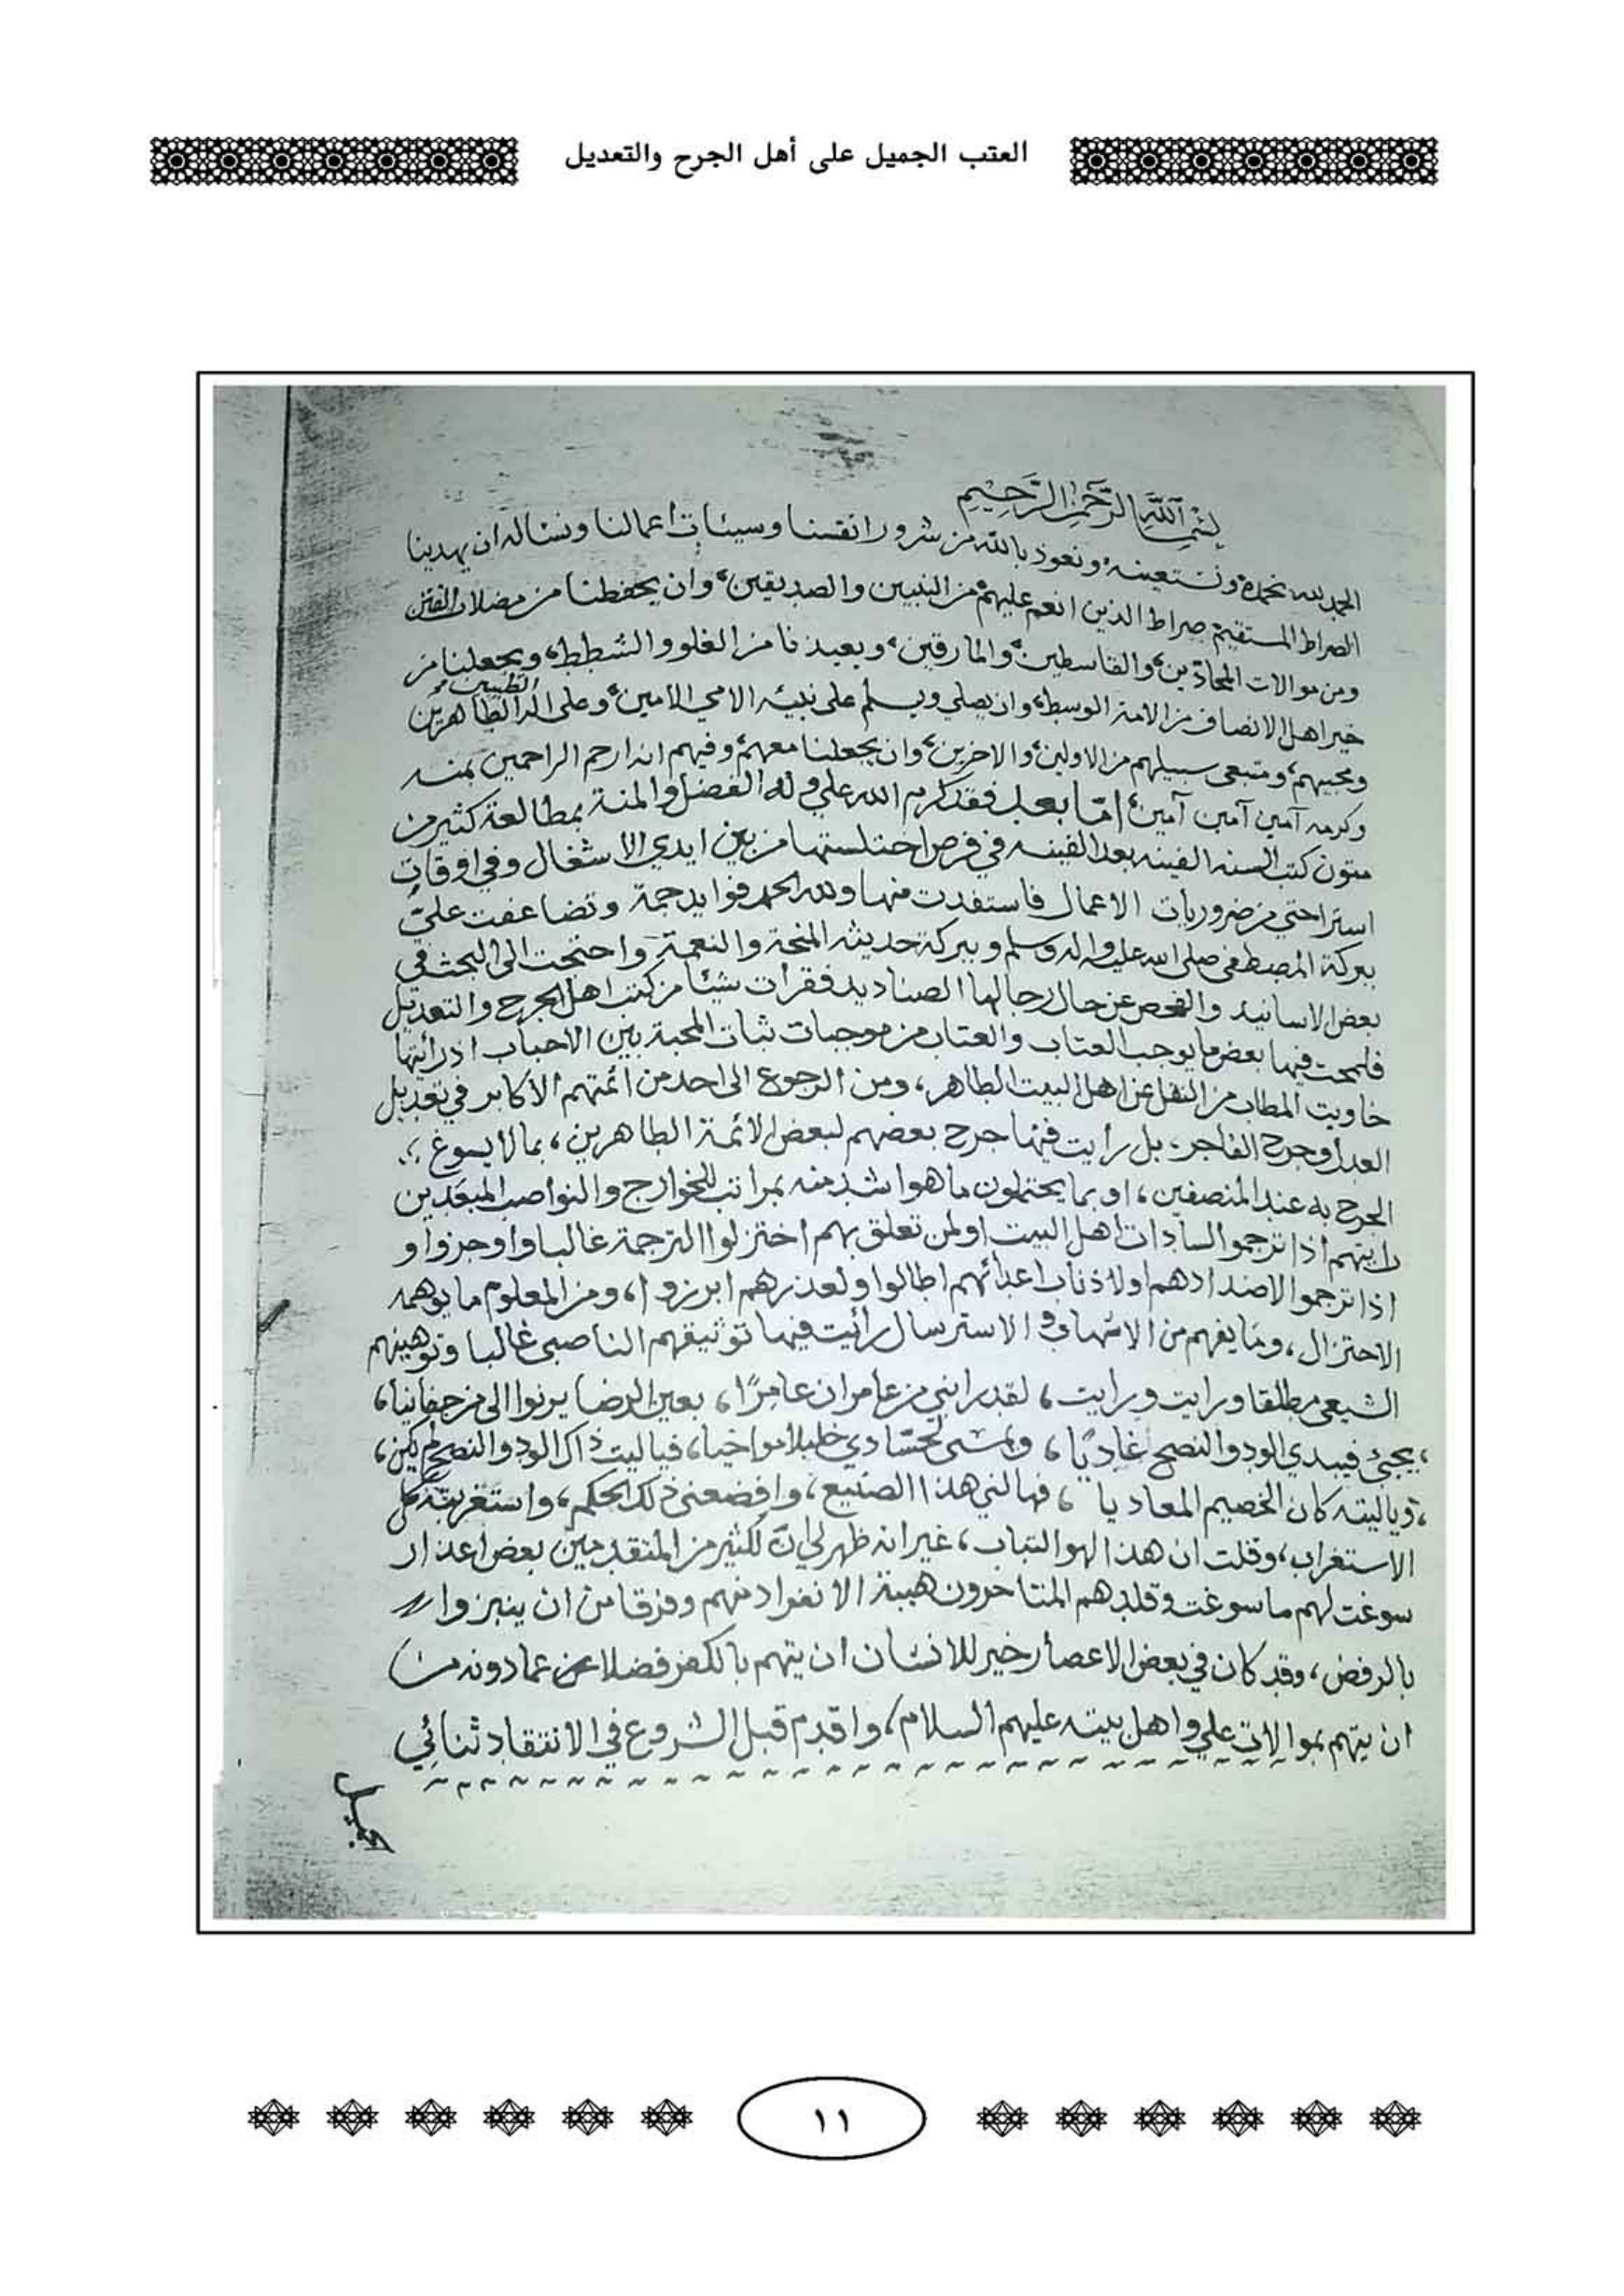 العتب الجميل على أهل الجرح والتعديل
بسم الله الرحمن الرحيم
الحمد لله نحمده ونستعينه ونعوذ بالله من شرور انفسنا وسيئات اعمالنا ونساله ان يهدينا
الصراط المستقيم صراط الذين انعم عليهم من النبيين والصديقين، وان يحفظنا من مضلات الفتن
ومن موالات المحادين، والقاسطين، والمارقين، ويعيذنا من الغلو والشطط، ويجعلنا من
خير اهل الانصاف من الامة الوسط، وان يصلي ويسلم على نبيه الامي الامين، وعلى اله الطيبين الطاهرين
ومحبيهم، ومتبعي سبيلهم من الاولين، والاخرين، وان يجعلنا معهم، وفيهم انه ارحم الراحمين بمنه
وكرمه آمين آمين آمين، امّا بعد فقد كرم الله علي وله الفضل والمنة بمطالعة كثير من
متون كتب السنه الفينه بعد الفينه في فرص اختلستها من بين ايدي الاشغال وفي اوقات
استراحتي من ضروريات الاعمال فاستفدت منها ولله الحمد فوايد جمة وتضاعفت عليّ
ببركة المصطفى صلى الله عليه واله وسلم وببركة حديثه المنحة والنعمة واحتجت الى البحث في
بعض الاسانيد والفحص عن حال رجالها الصناديد فقرات شيئا من كتب اهل الجرح والتعديل
فلمحت فيها بعض ما يوجب العتاب والعتاب من موجبات ثبات المحبة بين الاحباب اذ رائيتها
خاويت الوطاب من النقل عن اهل البيت الطاهر، ومن الرجوع الى احد من ائمتهم الاكابر في تعديل
العدل وجرح الفاجر، بل رايت فيها جرح بعضهم لبعض الائمة الطاهرين، بما لا يسوغ
الجرح به عند المنصفين، او بما يحتملون ما هو اشد منه بمراتب للخوارج والنواصب المبعدين
رايتهم اذا ترجموا لسادات اهل البيت او لمن تعلق بهم اختزلوا الترجمة غالبا واوجزوا و
اذا ترجموا لاضدادهم او لاذناب اعدائهم اطالوا ولعذرهم ابرزوا، ومن المعلوم ما يوهمه
الاختزال، وما يفهم من الاسهاب والاسترسال رائيت فيها توثيقهم الناصبي غالبا وتوهينهم
الشيعي مطلقا ورايت ورايت، لقد رابني من عامر ان عامرًا، بعين الرضا يرنوا الى من جفانيا،
يجيئ فيبدي الود والنصح غاديًا، ويمسي لحسّادي خليلا مواخيا، فياليت ذاك الود والنصح لم يكن،
وياليته كان الخصيم المعاديا، فهالني هذا الصنيع، وافضعني ذلك الحكم، واستغربته كل
الاستغراب، وقلت ان هذا لهو التباب، غير انه ظهر لي انّ لكثير من المتقدمين بعض اعذار
سوغت لهم ما سوغت وقلدهم المتاخرون هيبة الانفراد عنهم وفرقا من ان ينبزوا
بالرفض، وقد كان في بعض الاعصار خير للانسان ان يتهم بالكفر فضلا عن عما دونه من
ان يتهم بموالات علي واهل بيته عليهم السلام، واقدم قبل الشروع في الانتقاد ثنائي
١١